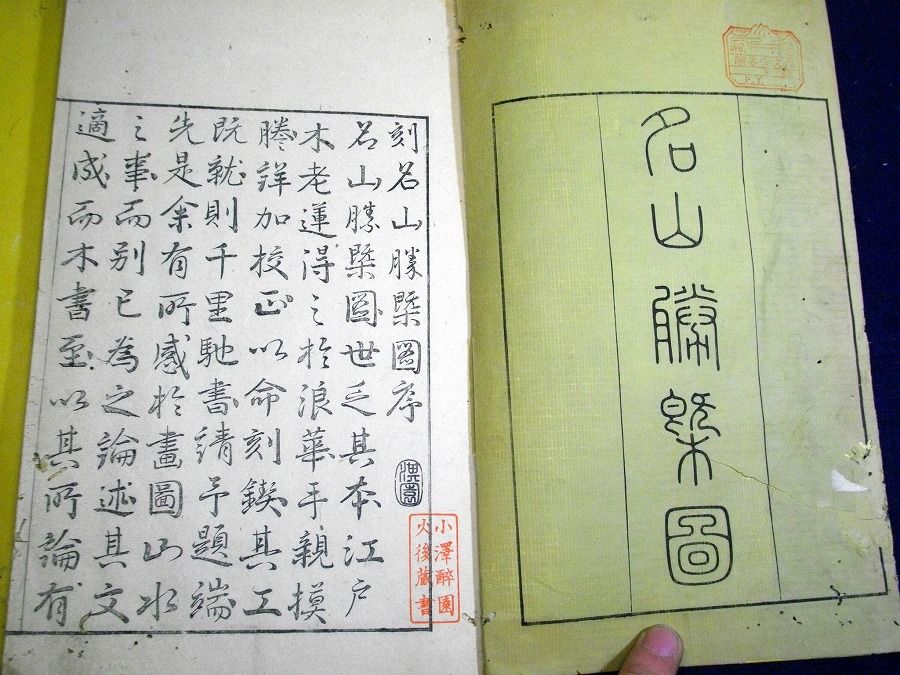 名山勝槩圖
刻名山勝槩圖序
淇園
名山勝槩圖世乏其本江戸
木老蓮得之於浪華手親摸
謄詳加校正以命刻鍥其工
既就則千里馳書請予題端
先是余有所感於畫圖山水
之事而別已為之論述其文
適成而木書至以其所論有
小澤醉園
火後蔵書
No.
P.Y.